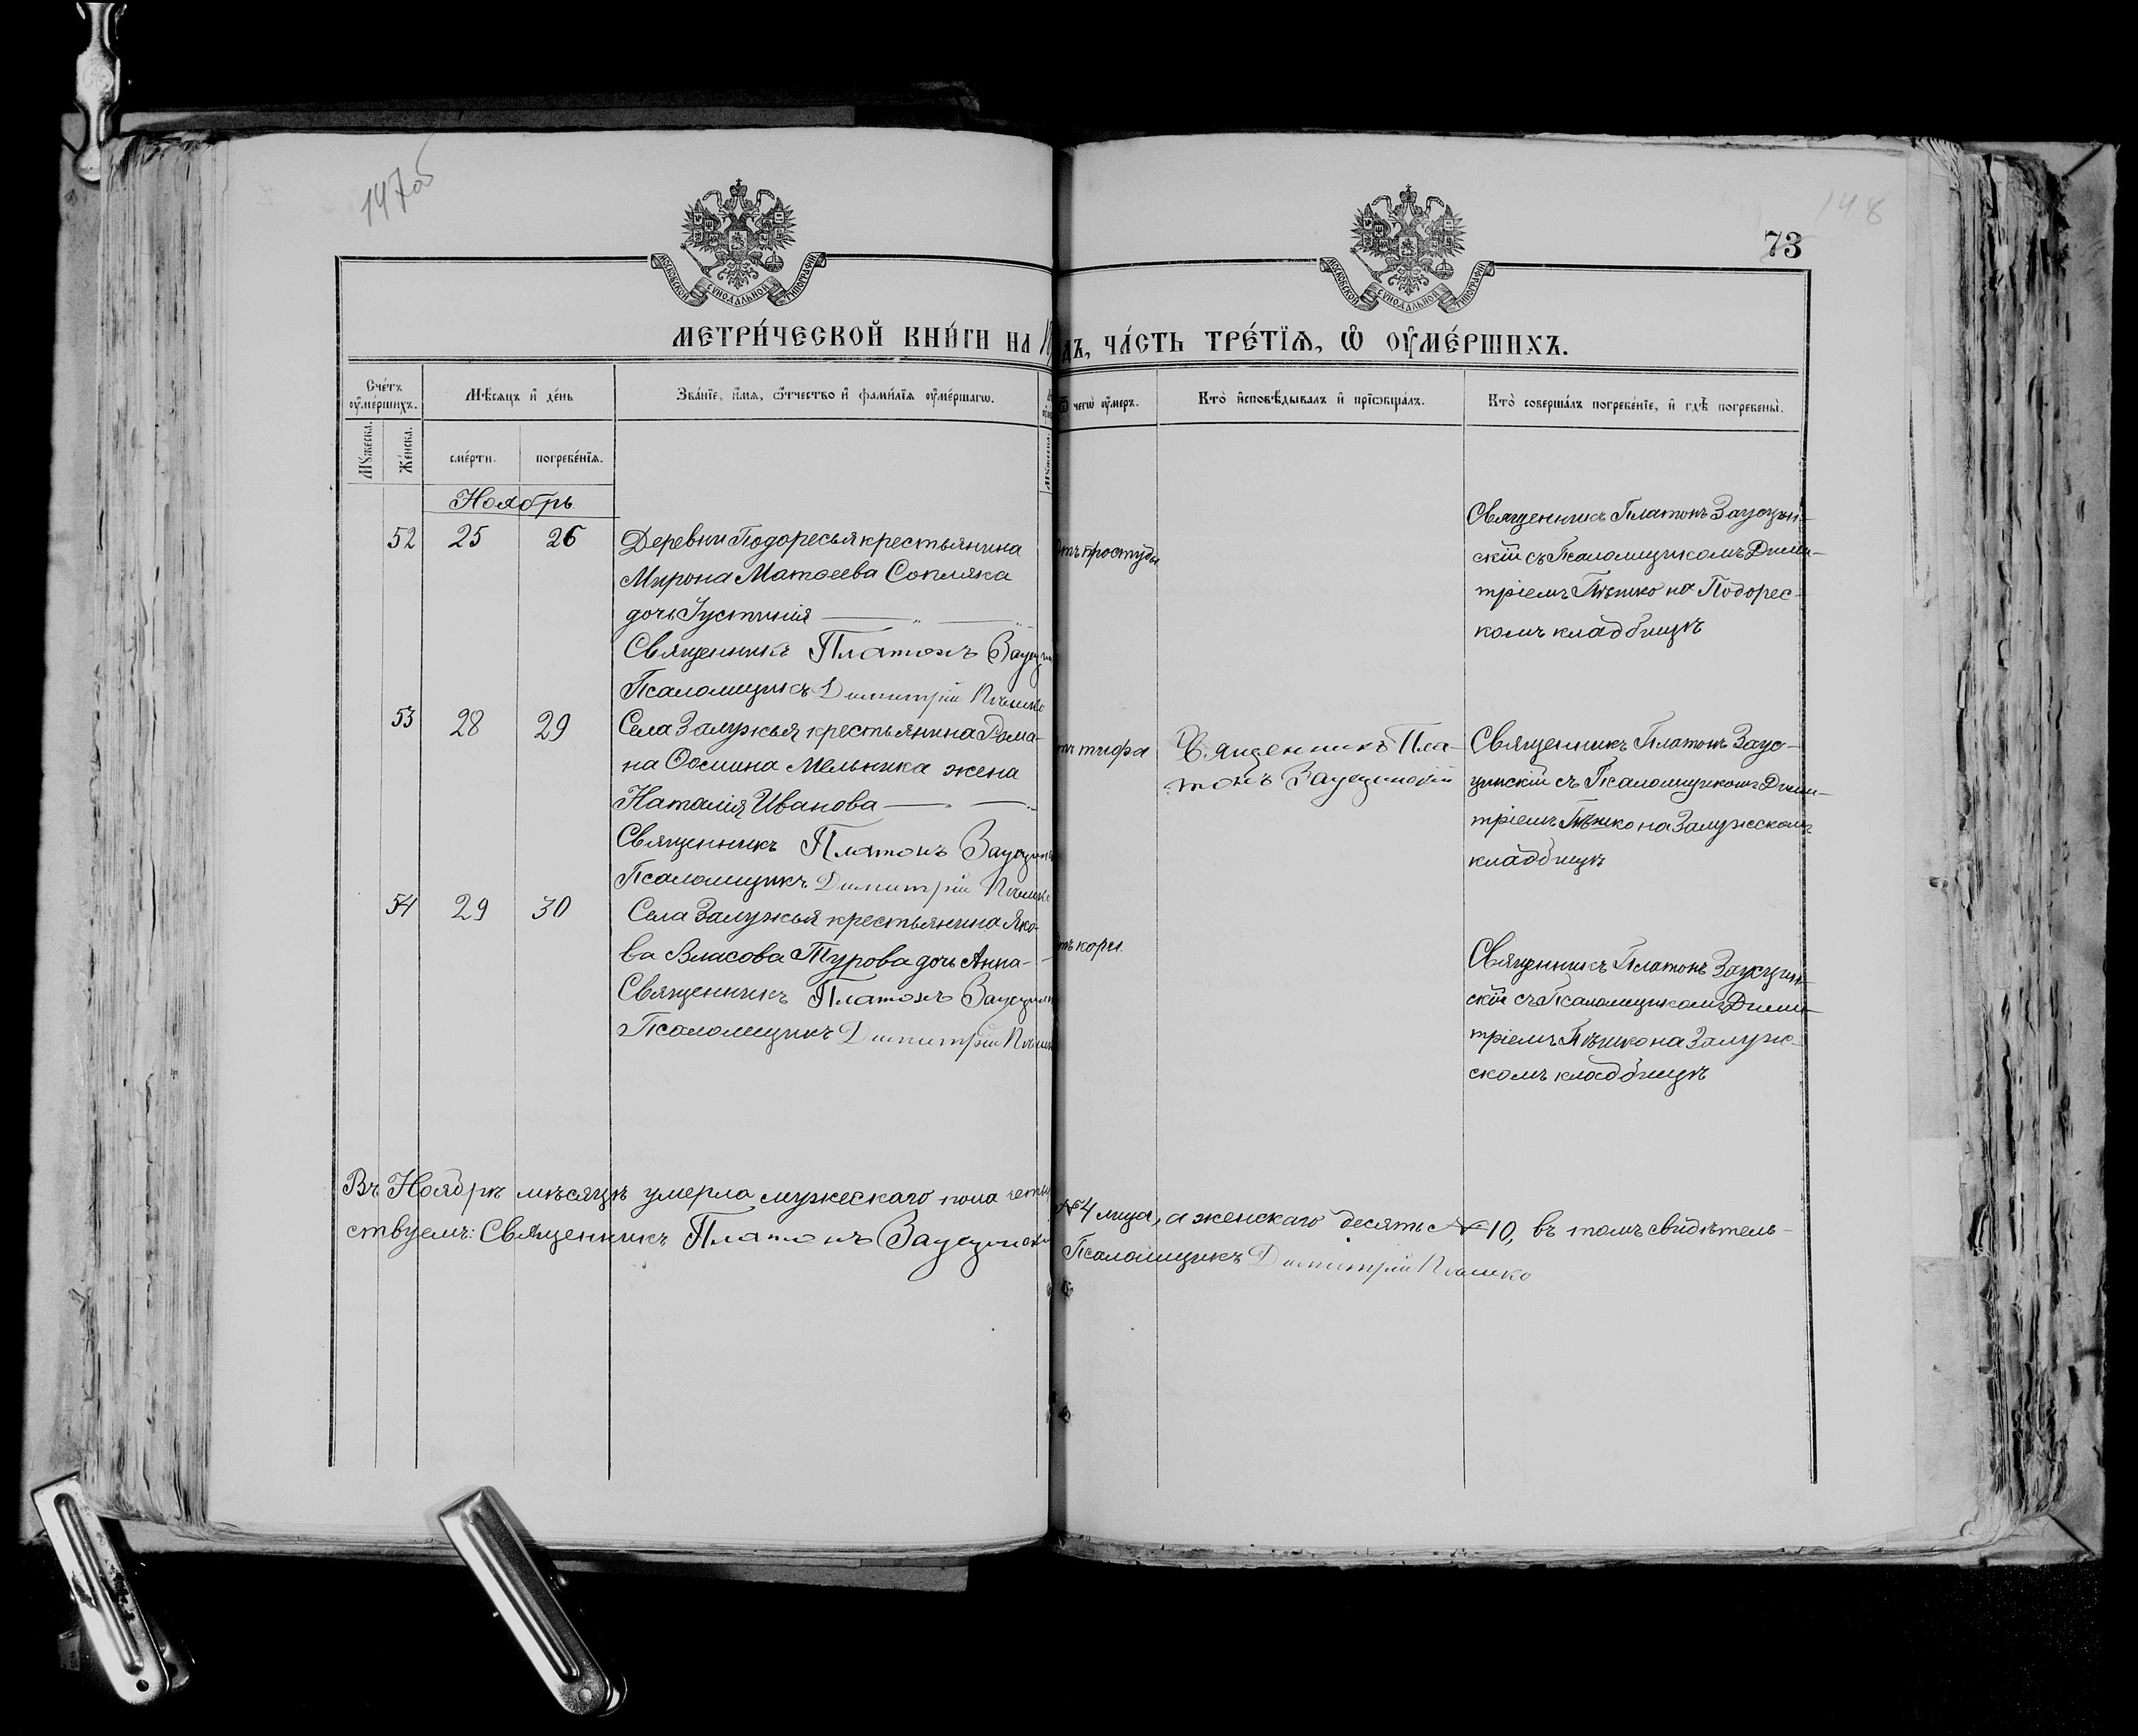 147об
148
73
МОСКОВСКОЙ СѴНОДАЛЬНОЙ ТИПОГРАФІИ
МОСКОВСКОЙ СѴНОДАЛЬНОЙ ТИПОГРАФІИ
МЕТРИ́ЧЕСКОЙ КНИ́ГИ НА
ДЪ, ЧА́СТЬ ТРЕ́ТЇѦ, Ѡ҆ ОУ҆МЕ́РШИХЪ.
Сче́тъ оу҆ме́ршихъ.
Мѣ́сяцъ и҆ де́нь
Зва́нїе, и҆́мѧ, ѻ҆́тчество и҆ фами́лїѧ оу҆ме́ршагѡ.
Ѿ чегѡ̀ оу҆́меръ.
Кто̀ и҆сповѣ́дывалъ и҆ прїѡбща́лъ.
Кто̀ соверша́лъ погребе́нїе, и҆ гдѣ̀ погребены̀.
Мꙋ́жеска.
Же́нска.
сме́рти.
погребе́нїѧ.
Ноябрь
52 25 26
Деревни Подоресья крестьянина
Мирона Матѳеева Сопляка
дочь Іустинія
Священникъ Платонъ
Псаломщикъ Димитрій Пѣшко
отъ простуды
Священникъ Платонъ Заусцин-
скій съ Псаломщикомъ Дими-
тріемъ Пѣшко на Подорес-
комъ кладбищѣ
53 28 29
Села Залужья крестьянина Рома-
на Ѳомина Мельника жена
Наталія Иванова
Священникъ Платонъ
Псаломщикъ Димитрій Пѣшко
отъ тифа
Священникъ Пла-
тонъ Заусцинскій
Священникъ Платонъ Заус-
цинскій съ Псаломщикомъ Дими-
тріемъ Пѣшко на Залужскомъ
кладбищѣ
54 29 30
Села Залужья крестьянина Яко-
ва Власова Турова дочь Анна
Священникъ Платонъ
Псаломщикъ Димитрій
отъ кори.
Священникъ Платонъ Заусцин-
скій съ Псаломщикомъ Дими-
тріемъ Пѣшко на Залуж-
скомъ кладбищѣ
Въ Ноябрѣ мѣсяцѣ умерла мужескаго пола четы
№ 4 лица, а женскаго десять № 10, въ томъ свидѣтель-
ствуемъ: Священникъ Платонъ Заусцинскій
Псаломщикъ Димитрій Пѣшко